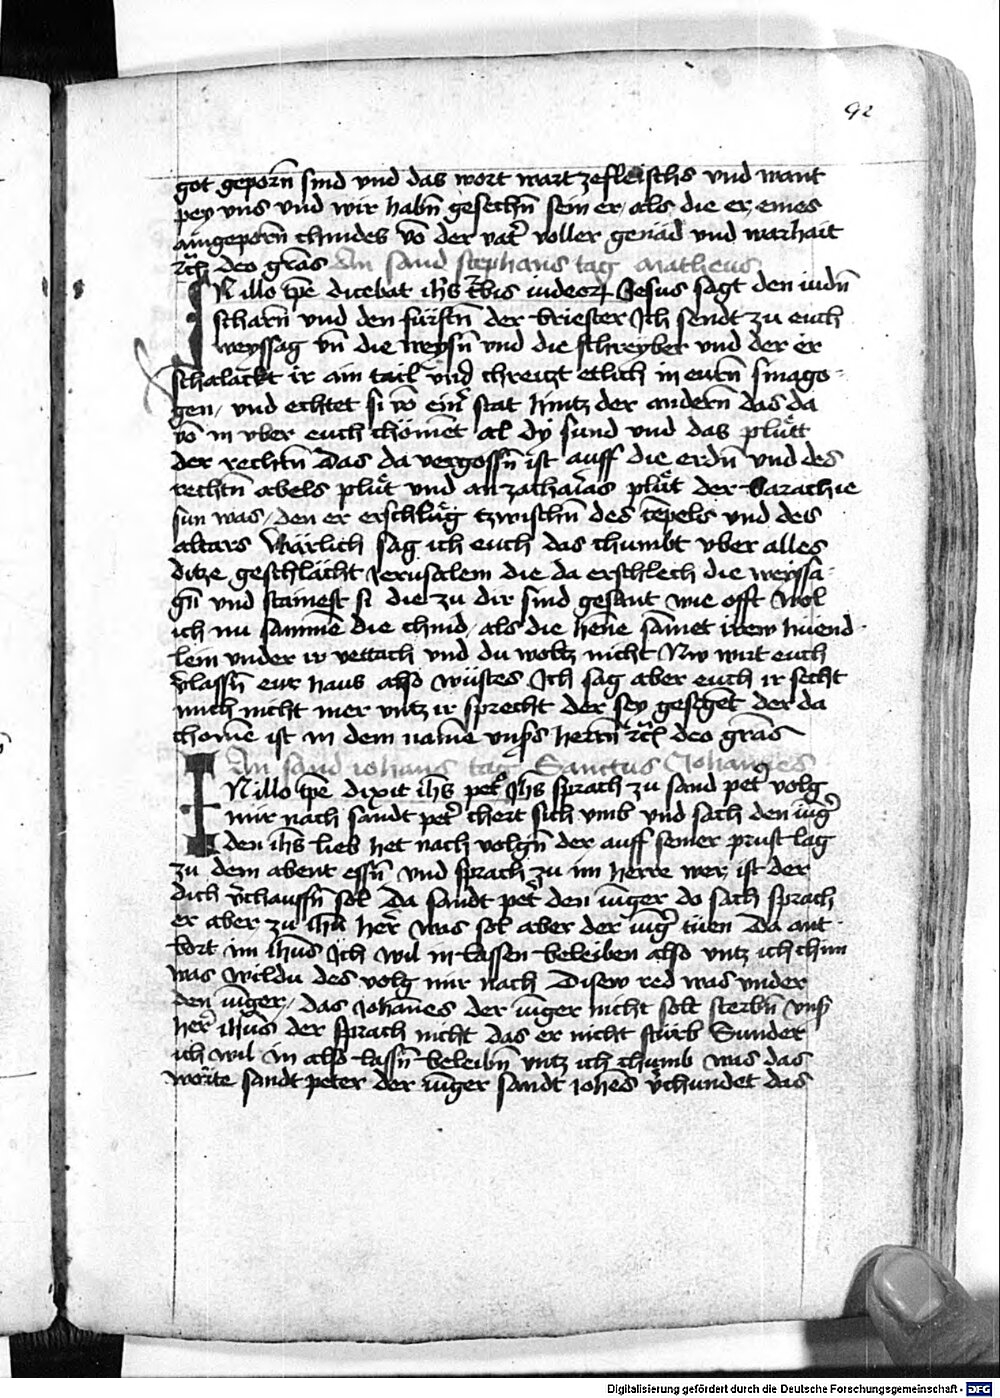 92
got geporn̄ sind vnd das wort wart ze fleischs vnd want
pey vns vnd wir habn̄ gesechn̄ sein er / als die er eines
aingeporn̄ chindes vō der vat̄ voller genad vnd warhait
rc̄ deo grās An sand stephans tag Matheus
IN illo tp̄e dicebat ih̄s t̄bis iudeorꝝ Jesus sagt den iudn̄
scharn̄ vnd den fürstn̄ der briester Ich sendt zu euch
weyssag vn̄ die weysn̄ vnd die schreyber vnd der er
schalackt ir ain tail vnd chreitzt etlich in eurn̄ sinago-
gen / vnd echtet si vō ein̄ stat hintz der andern̄ das da
vō in vber euch chömēt al dy sund vnd das plůtt
der rechtn̄ das da vergossn̄ ist auff die erdn̄ vnd des
rechtn̄ abels plůt vnd an zacharias plůt der Barachie
sun was / den er erschlůg tzwischn̄ des tēpels vnd des
altars Wärlich sag ich euch das chumbt vber alles
ditze geschlächt Jerusalem die da erschlech die weyssa-
gn̄ vnd stainest si die zu dir sind gesant wie offt wol
ich nu sammē die chind / als die henē samet irew huend-
lein vnder ir vettach vnd du woltz nicht Nw wirt euch
v̄lassn̄ eur haus also wüstes Ich sag aber euch ir secht
mich nicht mer vntz ir sprecht der sey gesegēt der da
chomē ist in dem namē vnsers herrn̄ rc̄ deo grās
An sand iohans tag Sanctus Johannes
IN illo tp̄e dixit ih̄s pet̄ Ih̄s sprach zu sand pet̄ volg
mir nach sandt pet̄ chert sich vmb vnd sach den iūḡ
den ih̄s lieb het nach volgn̄ der auff seiner prust lag
zu dem abent essn̄ vnd sprach zu im herre wer ist der
dich v̄chauffn̄ sol Da sandt pet̄ den iūger do sach sprach
er aber zu ih̄m her̄ was sol aber der iūḡ tůen Da ant-
bort im ih̄us Ich wil in lassen beleiben also vntz ich chim
was wildu des volg mir nach Disew red was vnder
den iūger / das Johannes der iūger nicht solt sterbn̄ vns̄
her̄ ih̄us der sprach nicht das er nicht sturb Sunder
ich wil in also lassn̄ beleibn̄ vntz ich chumb was das
worte sandt peter der iūger sandt iohes v̄chundet das
Digitalisierung gefördert durch die Deutsche Forschungsgemeinschaft - DFG